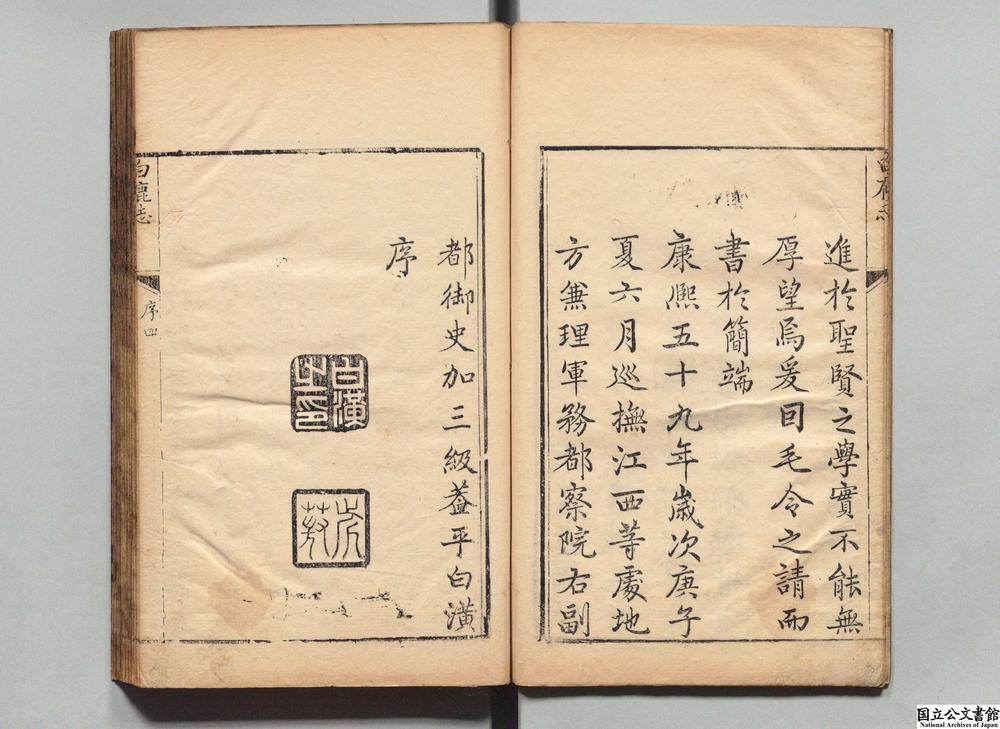 進於聖賢之學實不能無
厚望焉爰因毛令之請而
書於簡端
康熙五十九年歲次庚子
夏六月巡撫江西等處地
方兼理軍務都察院右副
都御史加三級蓋平白潢
序
白潢
之印
白鹿志
序四
国立公文書館
National Archives of Japan